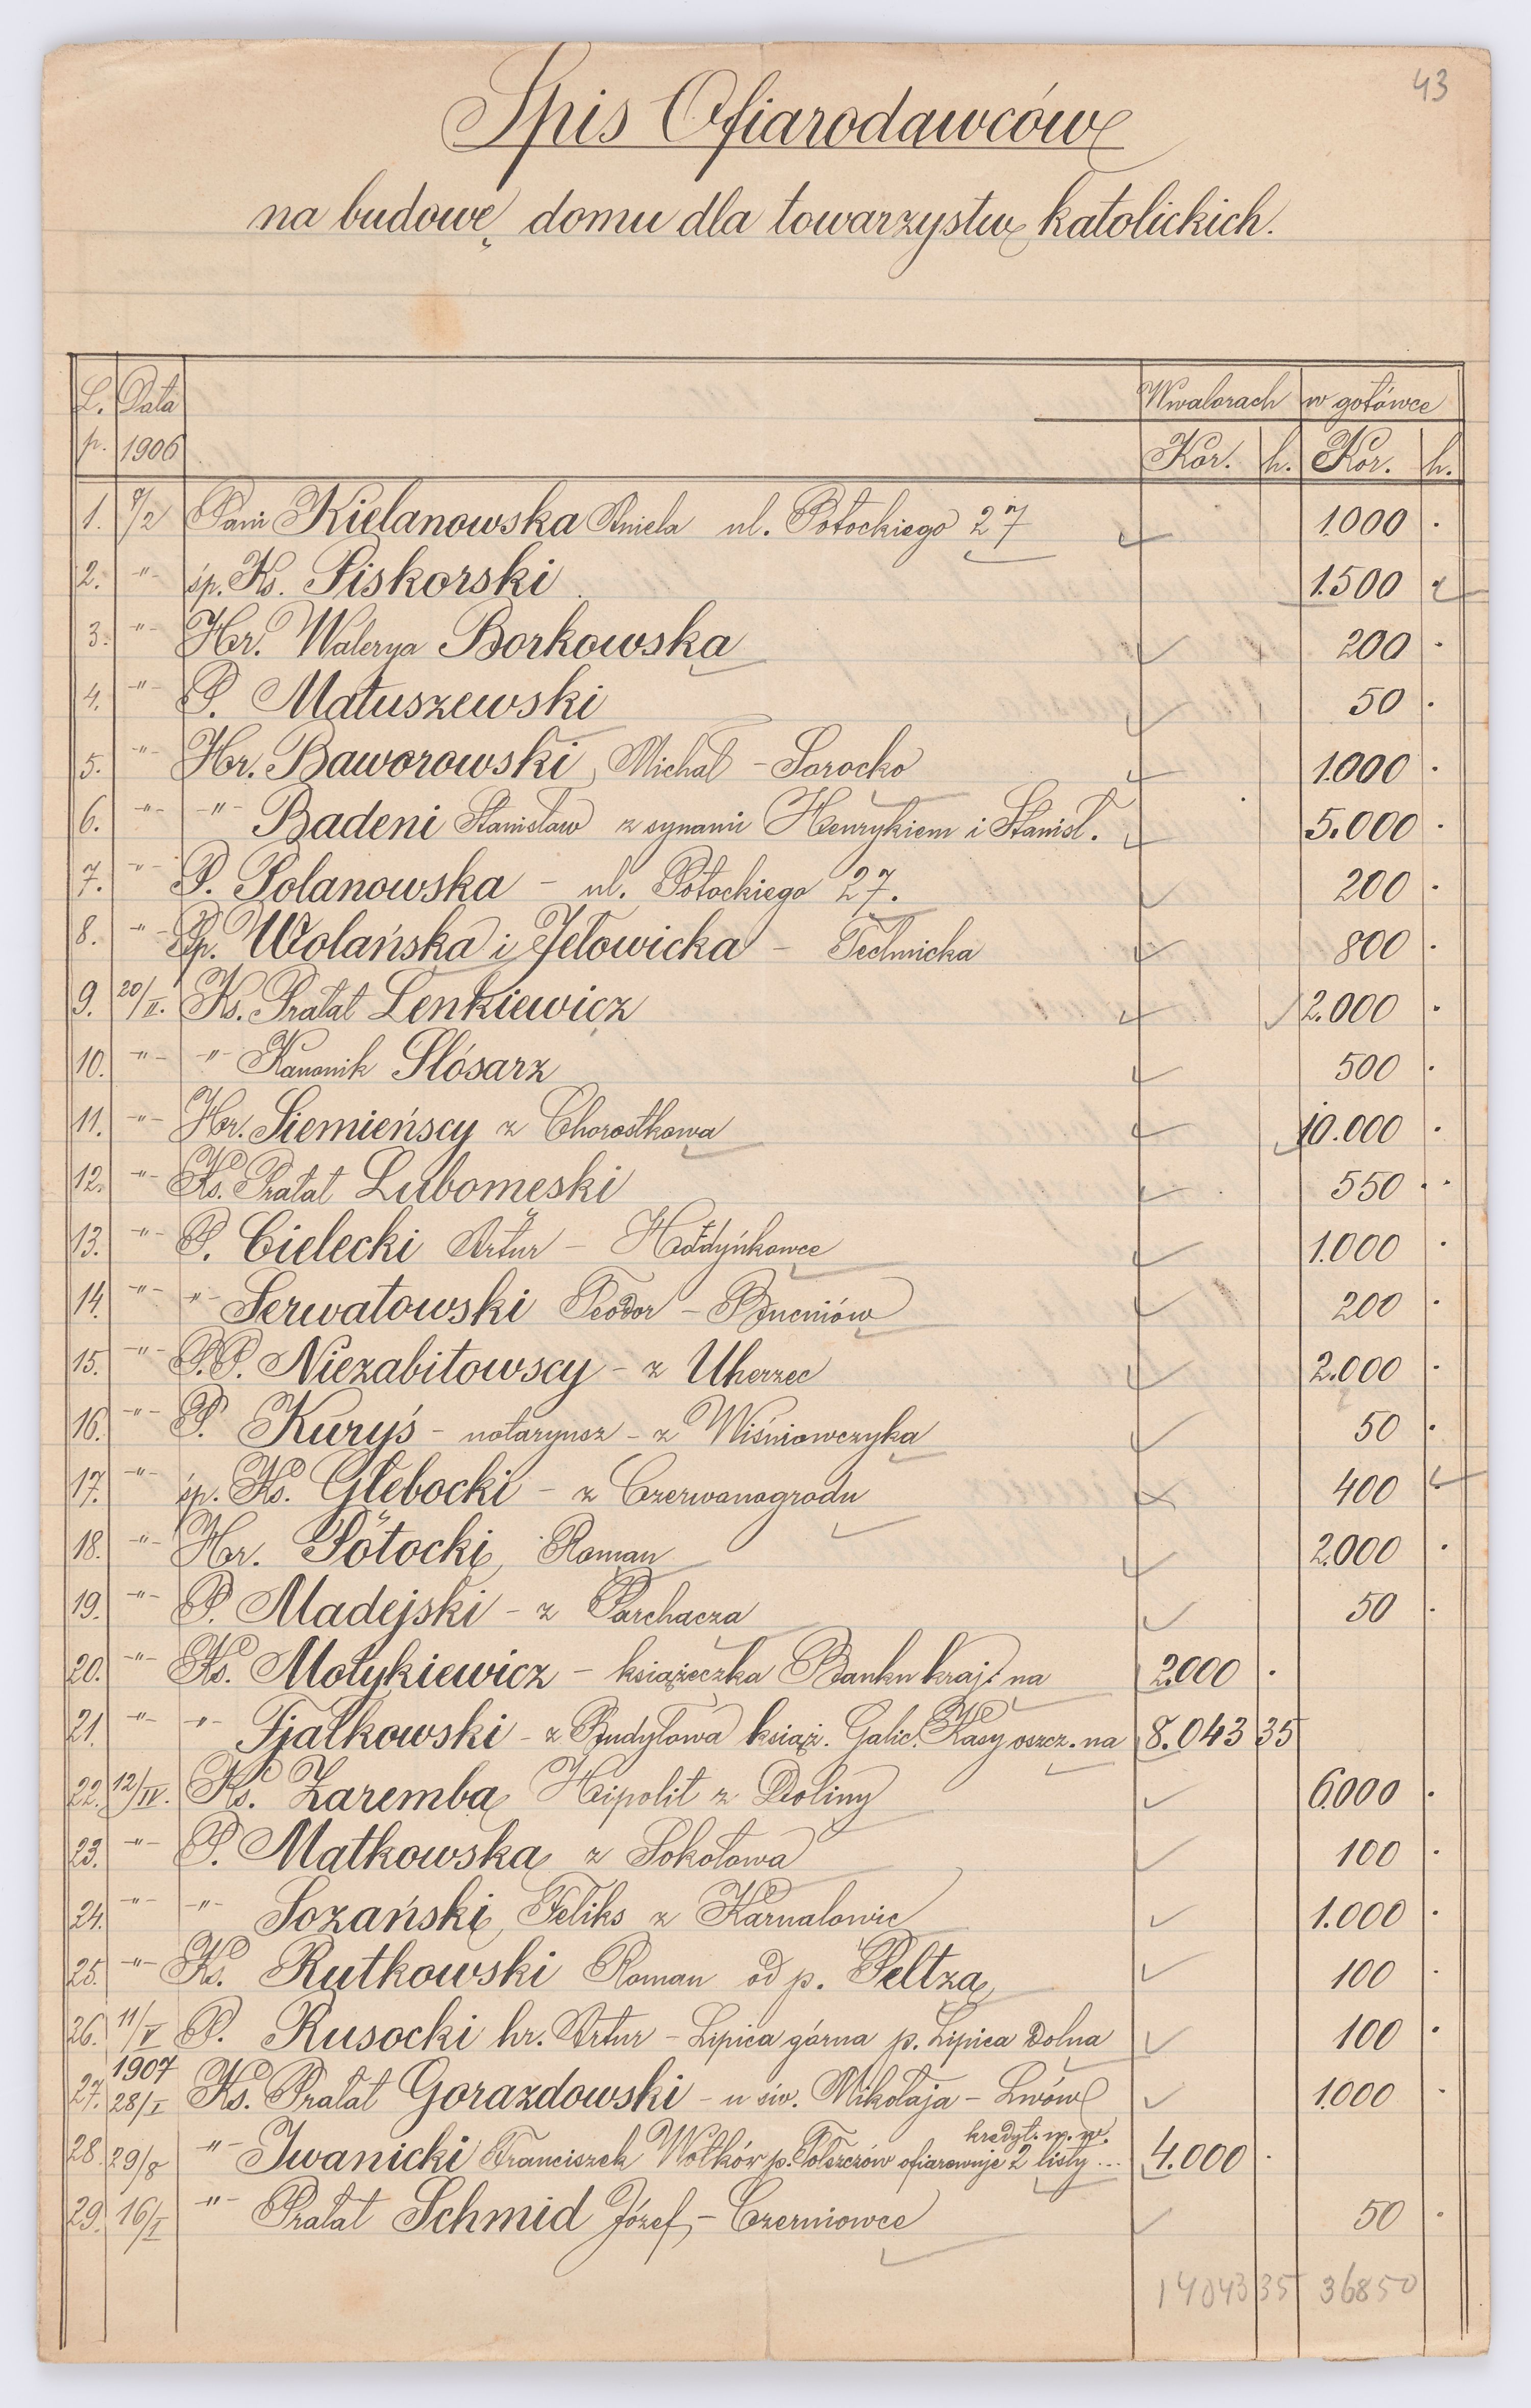 43
Spis Ofiarodawców
na budowę domu dla towarzystw katolickich.
L. p. Data 1906 W walorach w gotówce
Kor. h. Kor. h.
1. 7/2 Pani Kielanowska Aniela ul. Potockiego 27 1.000 .
2. -"- śp. Ks. Piskorski 1.500
3. -"- Hr. Walerya Borkowska 200 .
4. -"- P. Matuszewski 50 .
5. -"- Hr. Baworowski, Michał - Sorocko 1.000 .
6. -"- -"- Badeni Stanisław z synami Henrykiem i Stanisł. 5.000 .
7. -"- P. Polanowska - ul. Potockiego 27. 200 .
8. -"- Pp. Wolańska i Jełowicka - Technicka 800 .
9. 20/II. Ks. Prałat Lenkiewicz 2.000 .
10. -"- -"- Kanonik Slósarz 500 .
11. -"- Hr. Siemieńscy z Chorostkowa 10.000 .
12. -"- Ks. Prałat Lubomęski 550 .
13. -"- P. Cielecki Artur - Hadyńkowce 1.000 .
14. -"- -"- Serwatowski Teodor - Bucniów 200 .
15. -"- P.P. Niezabitowscy - z Uherzec 2.000 .
16. -"- P. Kuryś - notaryusz - z Wiśniowczyka 50 .
17. -"- śp. Ks. Głębocki - z Czerwonogrodu 400
18. -"- Hr. Potocki, Roman 2.000 .
19. -"- P. Madejski - z Parchacza 50 .
20. -"- Ks. Motykiewicz - książeczka Banku kraj. na 2.000 .
21. -"- -"- Fjałkowski - z Budyłowa książ. Galic. Kasy oszcz. na 8.043 35
22. 12/IV. Ks. Zaremba, Hipolit z Doliny 6.000 .
23. -"- P. Matkowska, z Sokołowa 100 .
24. -"- -"- Sozański, Feliks z Kornalowic 1.000 .
25. -"- Ks. Rutkowski Roman od p. Peltza, 100 .
26. 11/V P. Rusocki hr. Artur - Lipica górna p. Lipica Dolna 100 .
27. 1907 28/I Ks. Prałat Gorazdowski - u św. Mikołaja - Lwów 1.000 .
28. 29/8 -"- Iwanicki Franciszek Wołków p. Tołszczów ofiarowuje 2 listy kredyt. m. w. ... 4.000 .
29. 16/I -"- Prałat Schmid Józef, - Czerniowce 50 .
14043 35 36850